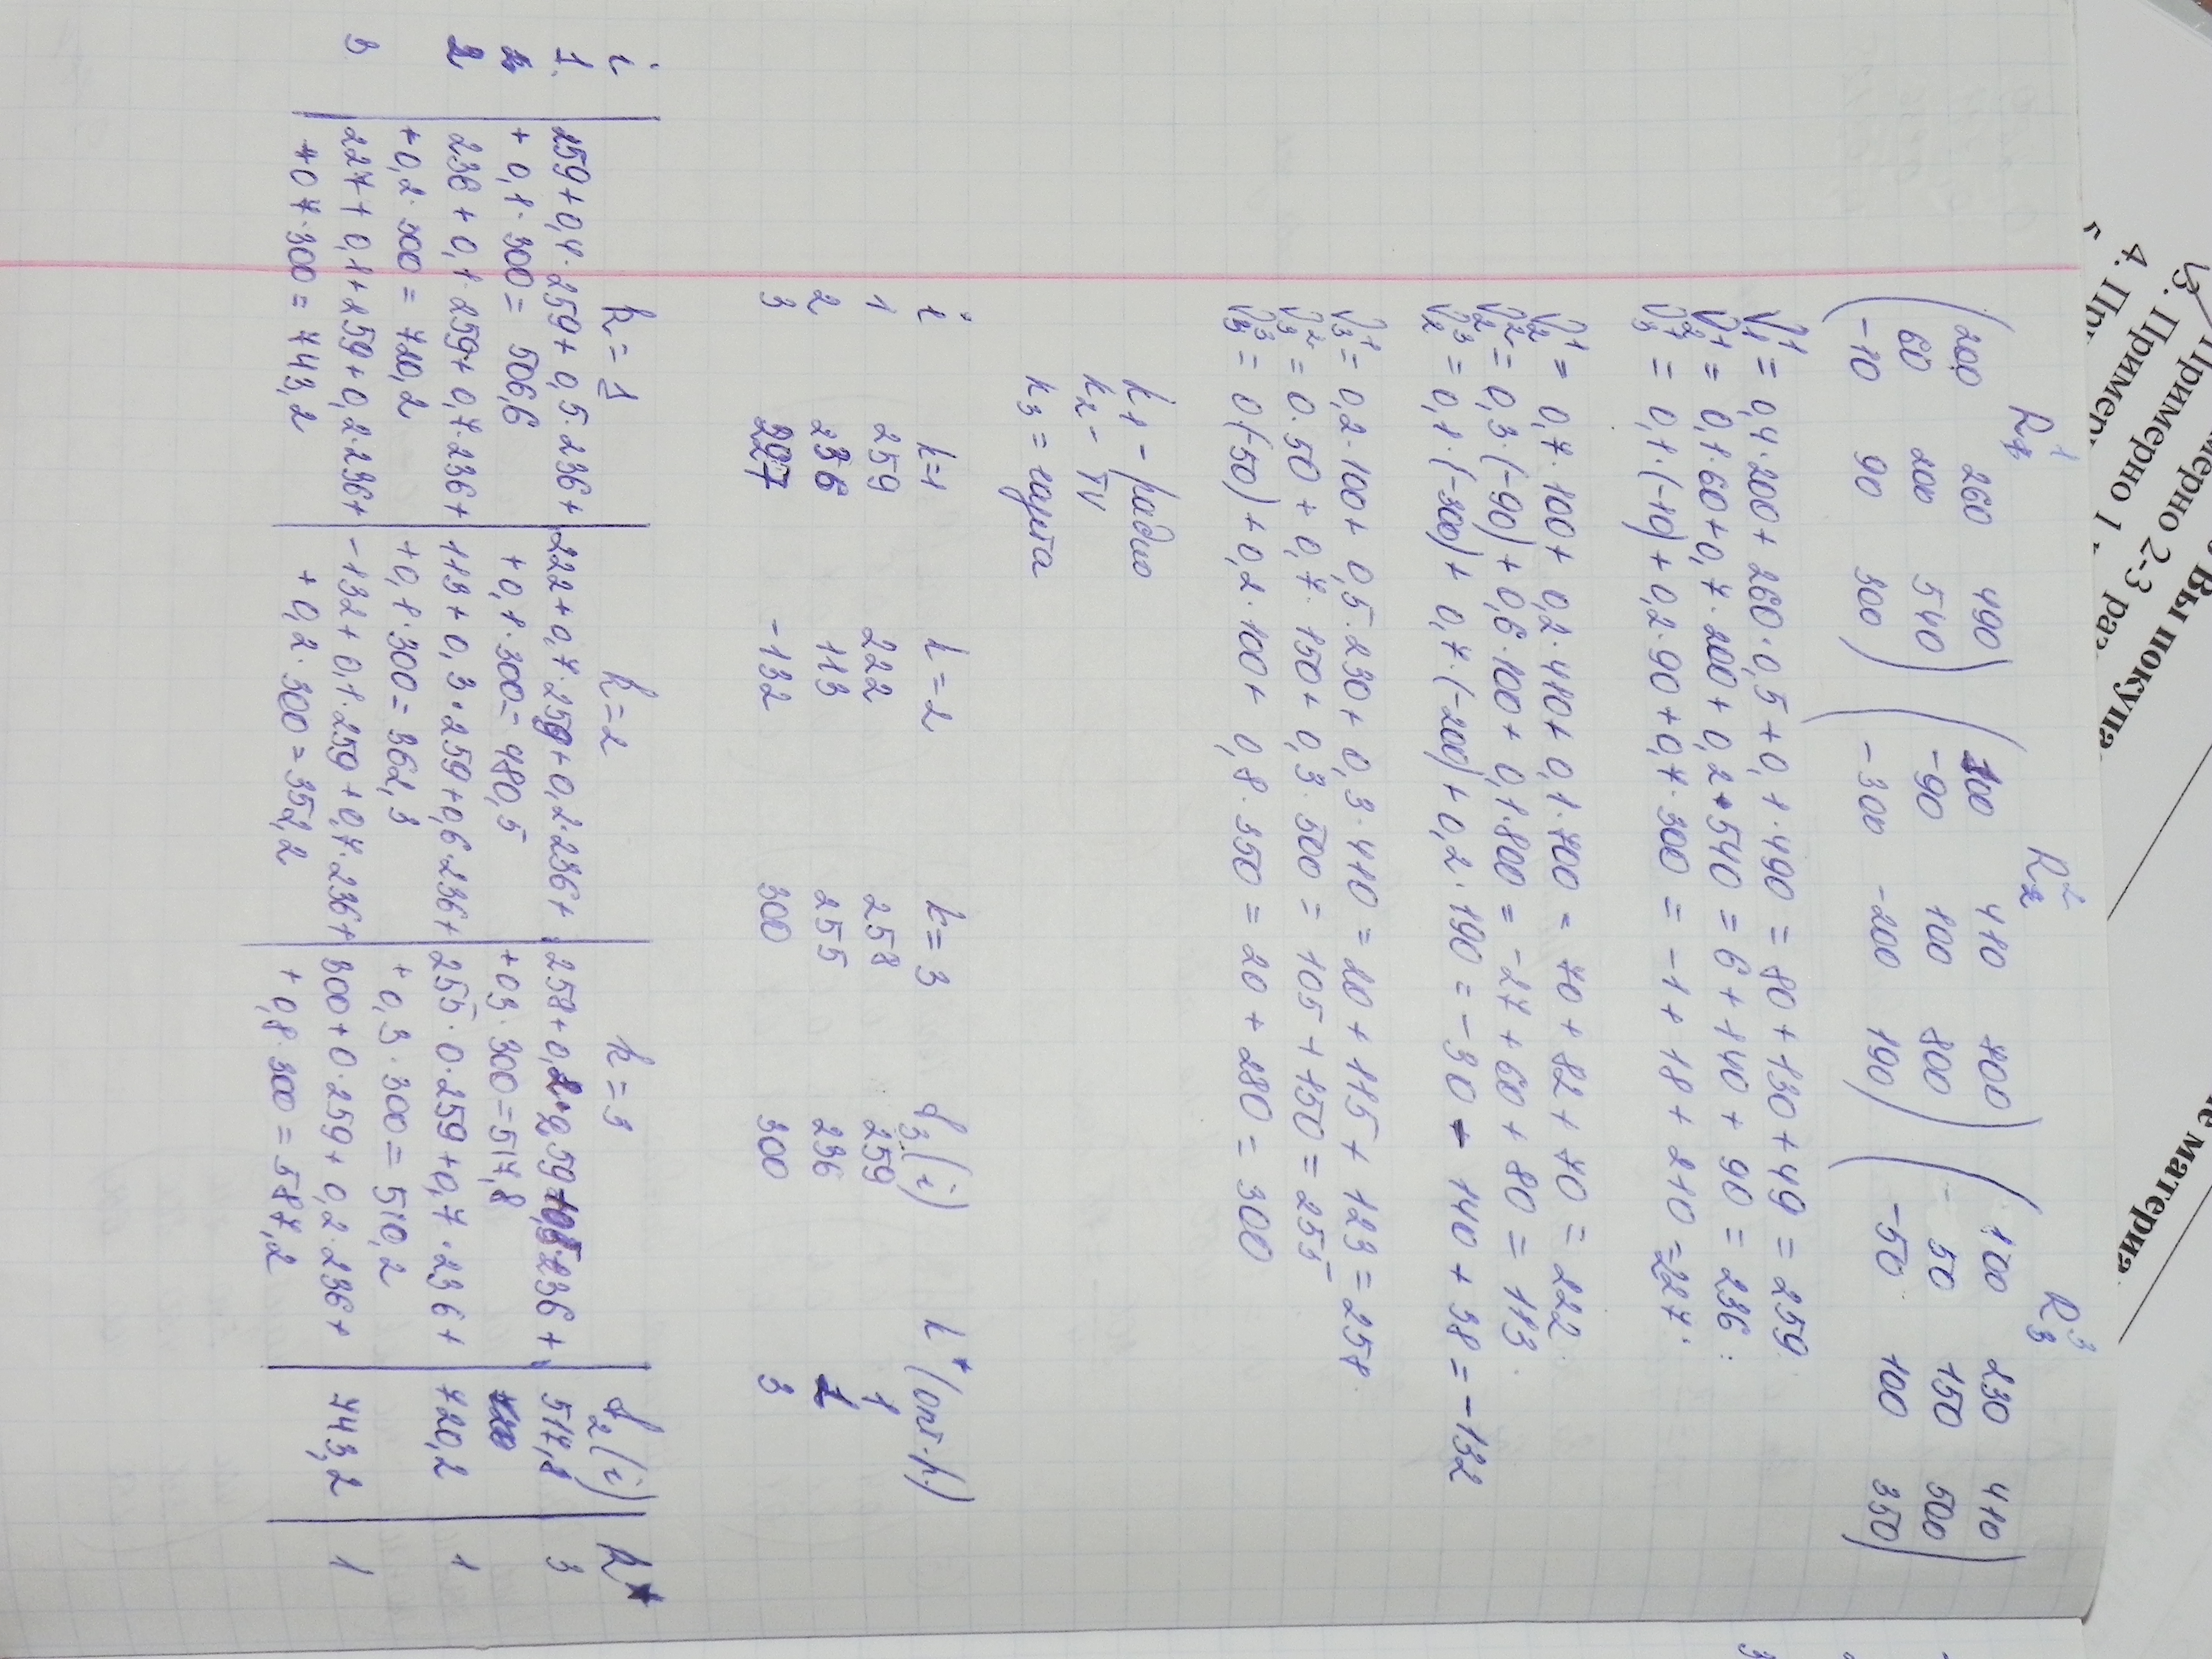 R₁¹ R₂² R₃³
(200 260 490) (100 410 700) (100 230 410)
60 200 540 -90 100 800 50 150 500
-10 90 300) -300 -200 190) -50 100 350)
V₁¹ = 0,4·200 + 260·0,5 + 0,1·490 = 80 + 130 + 49 = 259
V₂¹ = 0,1·60 + 0,7·200 + 0,2·540 = 6 + 140 + 90 = 236
V₃¹ = 0,1·(-10) + 0,2·90 + 0,7·300 = -1 + 18 + 210 = 227
V₂¹ = 0,7·100 + 0,2·410 + 0,1·700 = 70 + 82 + 70 = 222
V₂² = 0,3·(-90) + 0,6·100 + 0,1·800 = -27 + 60 + 80 = 113
V₂³ = 0,1·(-300) + 0,7·(-200) + 0,2·190 = -30 - 140 + 38 = -132
V₃¹ = 0,2·100 + 0,5·230 + 0,3·410 = 20 + 115 + 123 = 258
V₃² = 0·50 + 0,7·150 + 0,3·500 = 105 + 150 = 255
V₃³ = 0(-50) + 0,2·100 + 0,8·350 = 20 + 280 = 300
k₁ - радио
k₂ - TV
k₃ = газета
i k=1 k=2 k=3 f₃(i) k*(опт.k)
1 259 222 258 259 1
2 236 113 255 236 1
3 227 -132 300 300 3
i k=1 k=2 k=3 f₂(i) k*
1. 259+0,4·259+0,5·236+ 222+0,7·259+0,2·236+ 258+0,2·259+0,5·236+ 517,8 3
+0,1·300= 506,6 +0,1·300= 480,5 +0,3·300=517,8
2 236+0,1·259+0,7·236+ 113+0,3·259+0,6·236+ 255·0·259+0,7·236+ 720,2 1
+0,2·300= 720,2 +0,1·300= 362,3 +0,3·300=510,2
3 227+0,1+259+0,2·236+ -132+0,1·259+0,7·236+ 300+0·259+0,2·236+ 743,2 1
+0,7·300= 743,2 +0,2·300=352,2 +0,8·300=587,2
Вы покупа
мерно 2-3 ра
Примерно 1
3. Пример
4. При
е матери